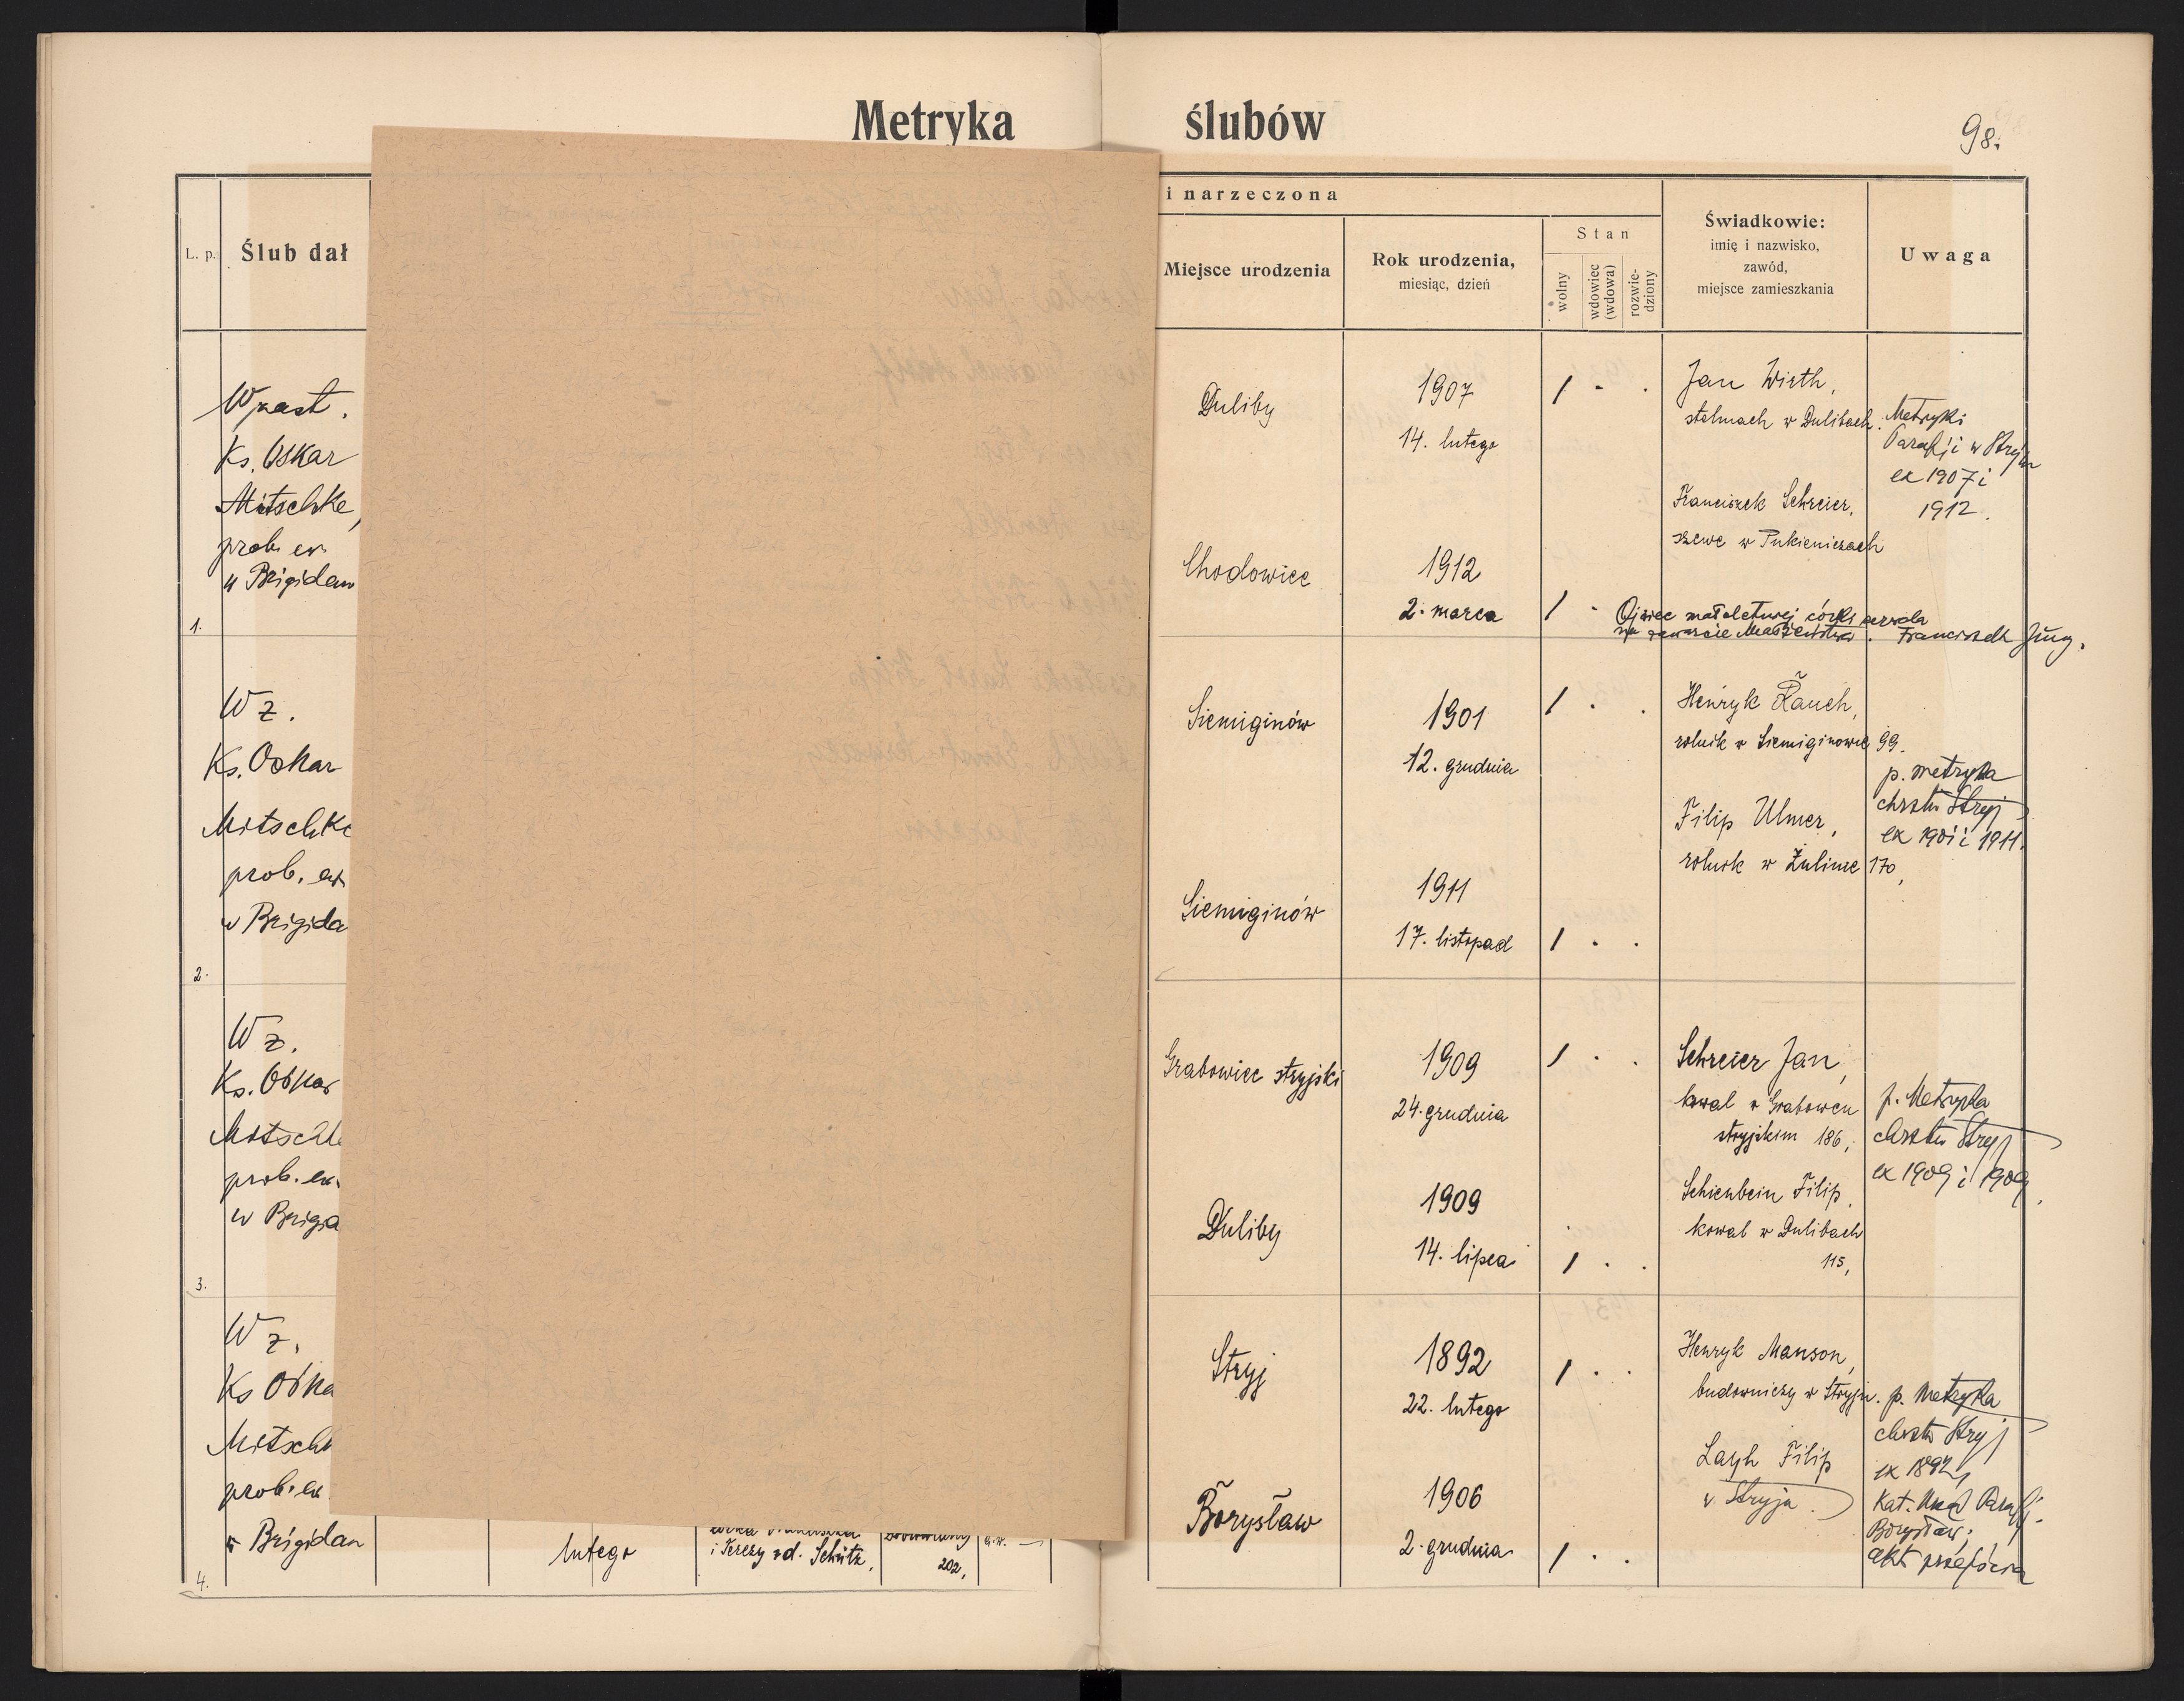 Metryka ślubów
98.
L. p.
Ślub dał
i narzeczona
Miejsce urodzenia
Rok urodzenia,
miesiąc, dzień
Stan
wolny
wdowiec
(wdowa)
rozwie-
dziony
Świadkowie:
imię i nazwisko,
zawód,
miejsce zamieszkania
Uwaga
1.
W zast.
Ks. Oskar
Mitschke,
prob. ew.
w Brigidau
Duliby
1907
14. lutego
Jan Wirth,
stelmach w Dulibach.
Metryki
Parafji w Stryju
ex 1907 i
1912.
Franciszek Schreier,
szewc w Pukieniczach
Chodowice
1912
2. marca
Ojciec małoletniej córki zezwala
na zawarcie Małżeństwa. Franciszek Jung.
2.
W z.
Ks. Oskar
Mitschke
prob. ew.
w Brigida
Siemiginów
1901
12. grudnia
Henryk Rauch,
rolnik w Siemiginowie 99.
p. metryka
chrztu Stryj
ex 1901 i 1911.
Filip Ulmer,
rolnik w Żulinie 170,
Siemiginów
1911
17. listopad
3.
W z.
Ks. Oskar
Mitschk
prob. ew.
w Brigid
Grabowiec stryjski
1909
24. grudnia
Schreier Jan,
kowal w Grabowcu
stryjskim 186,
p. Metryka
chrztu Stryj
ex 1909 i 1909.
Schienbein Filip,
kowal w Dulibach
115,
Duliby
1909
14. lipca
4.
W z.
Ks Oska
Mitschk
prob. ew.
w Brigidau
lutego
i Terezy zd. Schütz,
202,
Stryj
1892
22. lutego
Henryk Manson,
budowniczy w Stryju.
p. Metryka
chrztu Stryj
ex 1892,
Kat. Urząd Parafj.
Borysław;
akt przejścia
Layh Filip
w Stryju.
Borysław
1906
2. grudnia